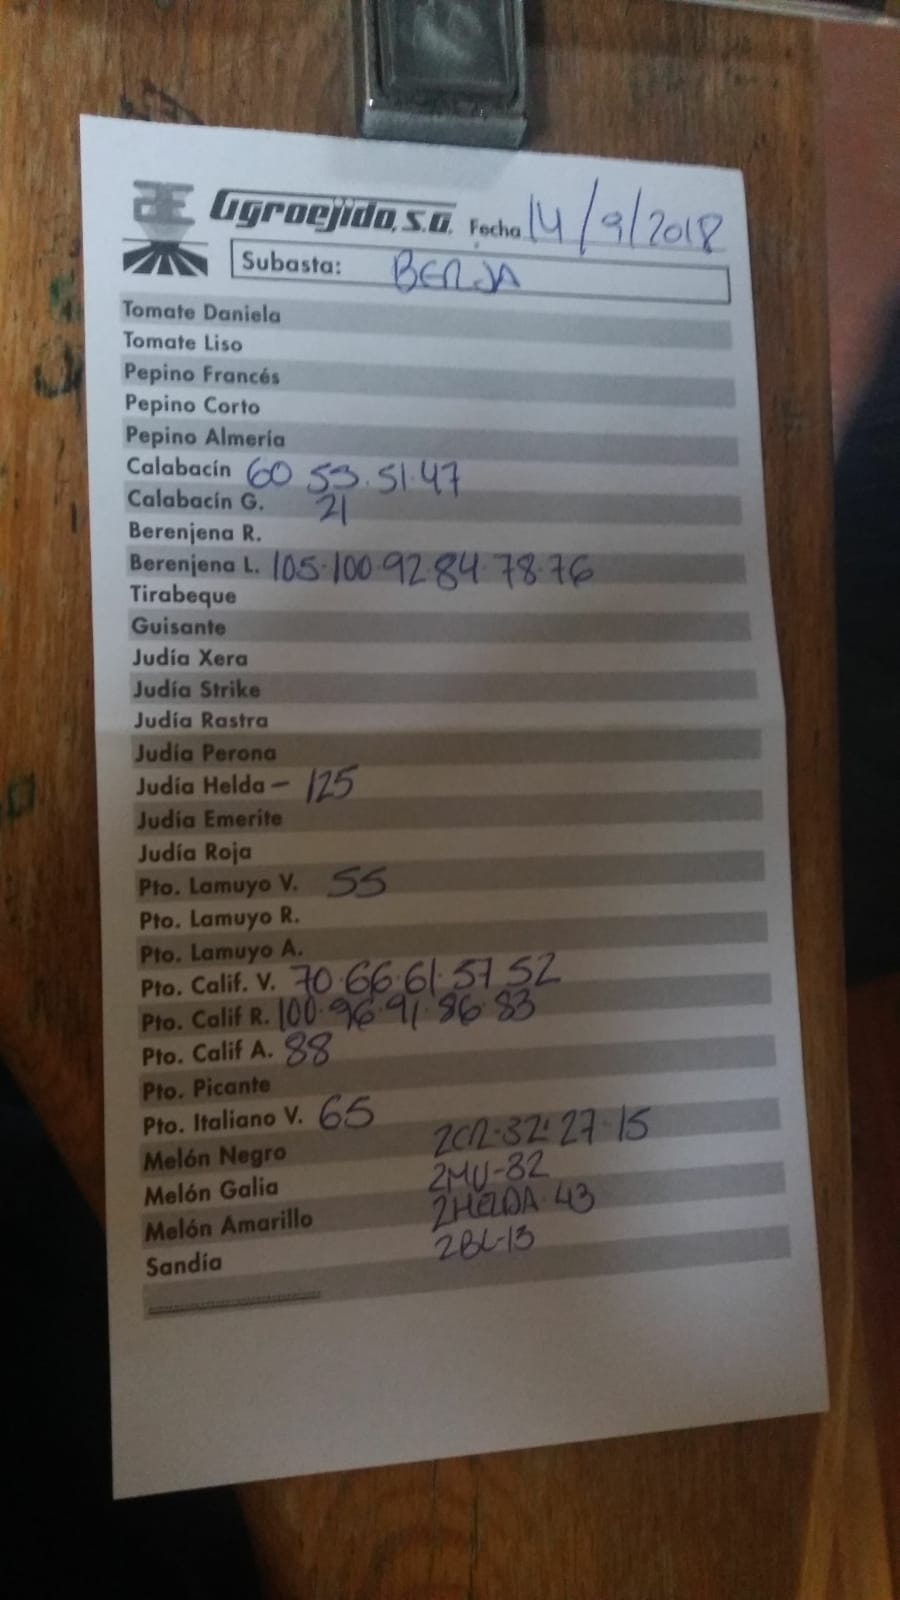 Agroejido, S.A. Fecha 14/9/2018
Subasta: BERJA
Tomate Daniela
Tomate Liso
Pepino Francés
Pepino Corto
Pepino Almería
Calabacín 60 53.51.47
Calabacín G. 21
Berenjena R.
Berenjena L. 105.100.92.84.78.76
Tirabeque
Guisante
Judía Xera
Judía Strike
Judía Rastra
Judía Perona
Judía Helda - 125
Judía Emerite
Judía Roja
Pto. Lamuyo V. 55
Pto. Lamuyo R.
Pto. Lamuyo A.
Pto. Calif. V. 70.66.61.57 52
Pto. Calif R. 100.96.91.86.83
Pto. Calif A. 88
Pto. Picante
Pto. Italiano V. 65
Melón Negro 2CR-32.27.15
Melón Galia 2MU-82
Melón Amarillo 2HELDA.43
Sandía 2BL-13